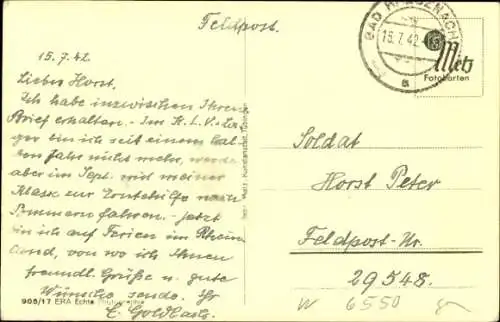 Feldpost.
15.7.42
Lieber Horst,
Ich habe inzwischen Ihren
Brief erhalten. - Im K.L.V.-La-
ger bin ich seit einem hal-
ben Jahr nicht mehr, werde
aber im Sept. mit meiner
Klasse zur Erntehilfe nach
Pommern fahren. - Jetzt
bin ich auf Ferien im Rhein-
land, von wo ich Ihnen
freundl. Grüße u. gute
Wünsche sende. Ihr
E.
908/17 ERA Echte
BAD KREUZNACH
15.7.42
a
Metz
Fotokarten
Soldat
Horst Peter
Feldpost-Nr.
29548.
W 6550